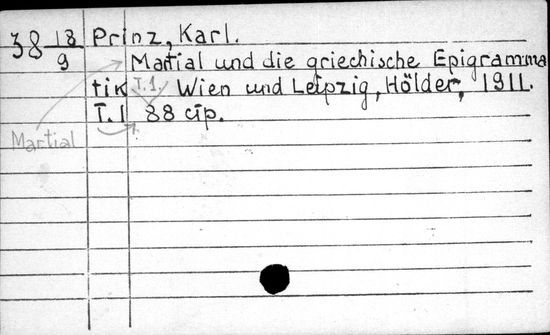 38 18/9 Prinz, Karl.
Martial und die griechische Epigramma
tik T.1. Wien und Leipzig, Hölder, 1911.
T.1 88 стр.
Martial